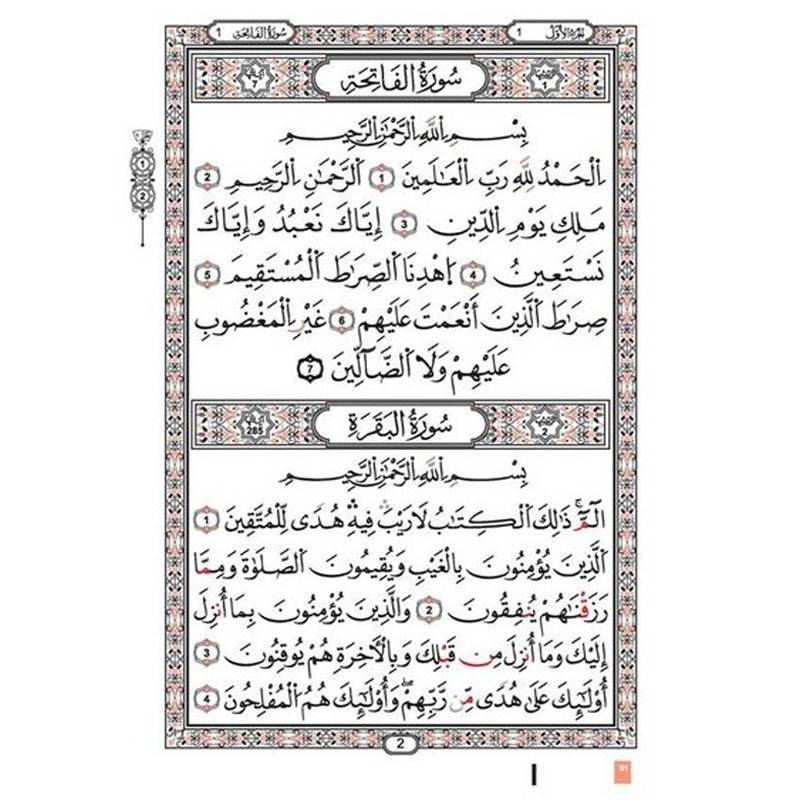 الجزء الأول 1
سورة الفاتحة 1
1
سورة الفاتحة
7
بِسْمِ اِ۬للَّهِ اِ۬لرَّحْمَٰنِ اِ۬لرَّحِيمِ
اِ۬لْحَمْدُ لِلَّهِ رَبِّ اِ۬لْعَٰلَمِينَ 1 اَ۬لرَّحْمَٰنِ اِ۬لرَّحِيمِ 2
مَلِكِ يَوْمِ اِ۬لدِّينِ 3 إِيَّاكَ نَعْبُدُ وَإِيَّاكَ
نَسْتَعِينُ 4 اِهْدِنَا اَ۬لصِّرَٰطَ اَ۬لْمُسْتَقِيمَ 5
صِرَٰطَ اَ۬لَّذِينَ أَنْعَمْتَ عَلَيْهِمْ 6 غَيْرِ اِ۬لْمَغْضُوبِ
عَلَيْهِمْ وَلَا اَ۬لضَّآلِّينَ 7
2
سُورَةُ البَقَرَةِ
285
بِسْمِ اِ۬للَّهِ اِ۬لرَّحْمَٰنِ اِ۬لرَّحِيمِ
الٓمٓۚ ذَٰلِكَ اَ۬لْكِتَٰبُ لَا رَيْبَۛ فِيهِۛ هُدًى لِّلْمُتَّقِينَ 1
اَ۬لَّذِينَ يُؤْمِنُونَ بِالْغَيْبِ وَيُقِيمُونَ اَ۬لصَّلَوٰةَ وَمِمَّا
رَزَقْنَٰهُمْ يُنفِقُونَ 2 وَالَّذِينَ يُؤْمِنُونَ بِمَا أُنزِلَ
إِلَيْكَ وَمَا أُنزِلَ مِن قَبْلِكَ وَبِالْأَخِرَةِ هُمْ يُوقِنُونَ 3
أُوْلَٰٓئِكَ عَلَىٰ هُدًى مِّن رَّبِّهِمْۖ وَأُوْلَٰٓئِكَ هُمُ اُ۬لْمُفْلِحُونَ 4
1
2
2